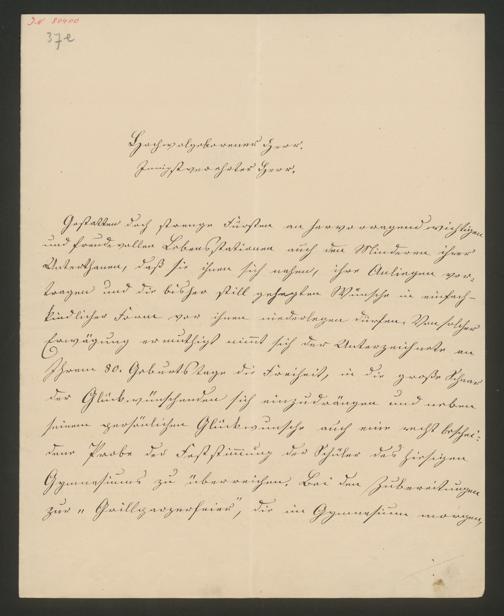 I.N 80400
37e
Hochwolgeborener Herr.
Innigstverehrter Herr.
Gestatten doch strenge Fürsten an hervorragend wichtigen
und freudevollen Lebensstationen auch den Minderen ihrer
Unterthanen, daß sie ihnen sich nahen, ihre Anliegen vor-
tragen und die bisher still gehegten Wünsche in einfach-
kindlicher Form vor ihnen niederlegen dürfen. Von solcher
Erwägung ermuthigt nimmt sich der Unterzeichnete an
Ihrem 80. Geburtstage die Freiheit, in die große Schaar
der Glückwünschenden sich einzudrängen und neben
seinem persönlichen Glückwunsche auch eine recht beschei-
dene Probe der Feststimmung der Schüler des hiesigen
Gymnasiums zu überreichen. Bei den Zubereitungen
zur "Grillparzerfeier", die im Gymnasium morgen,